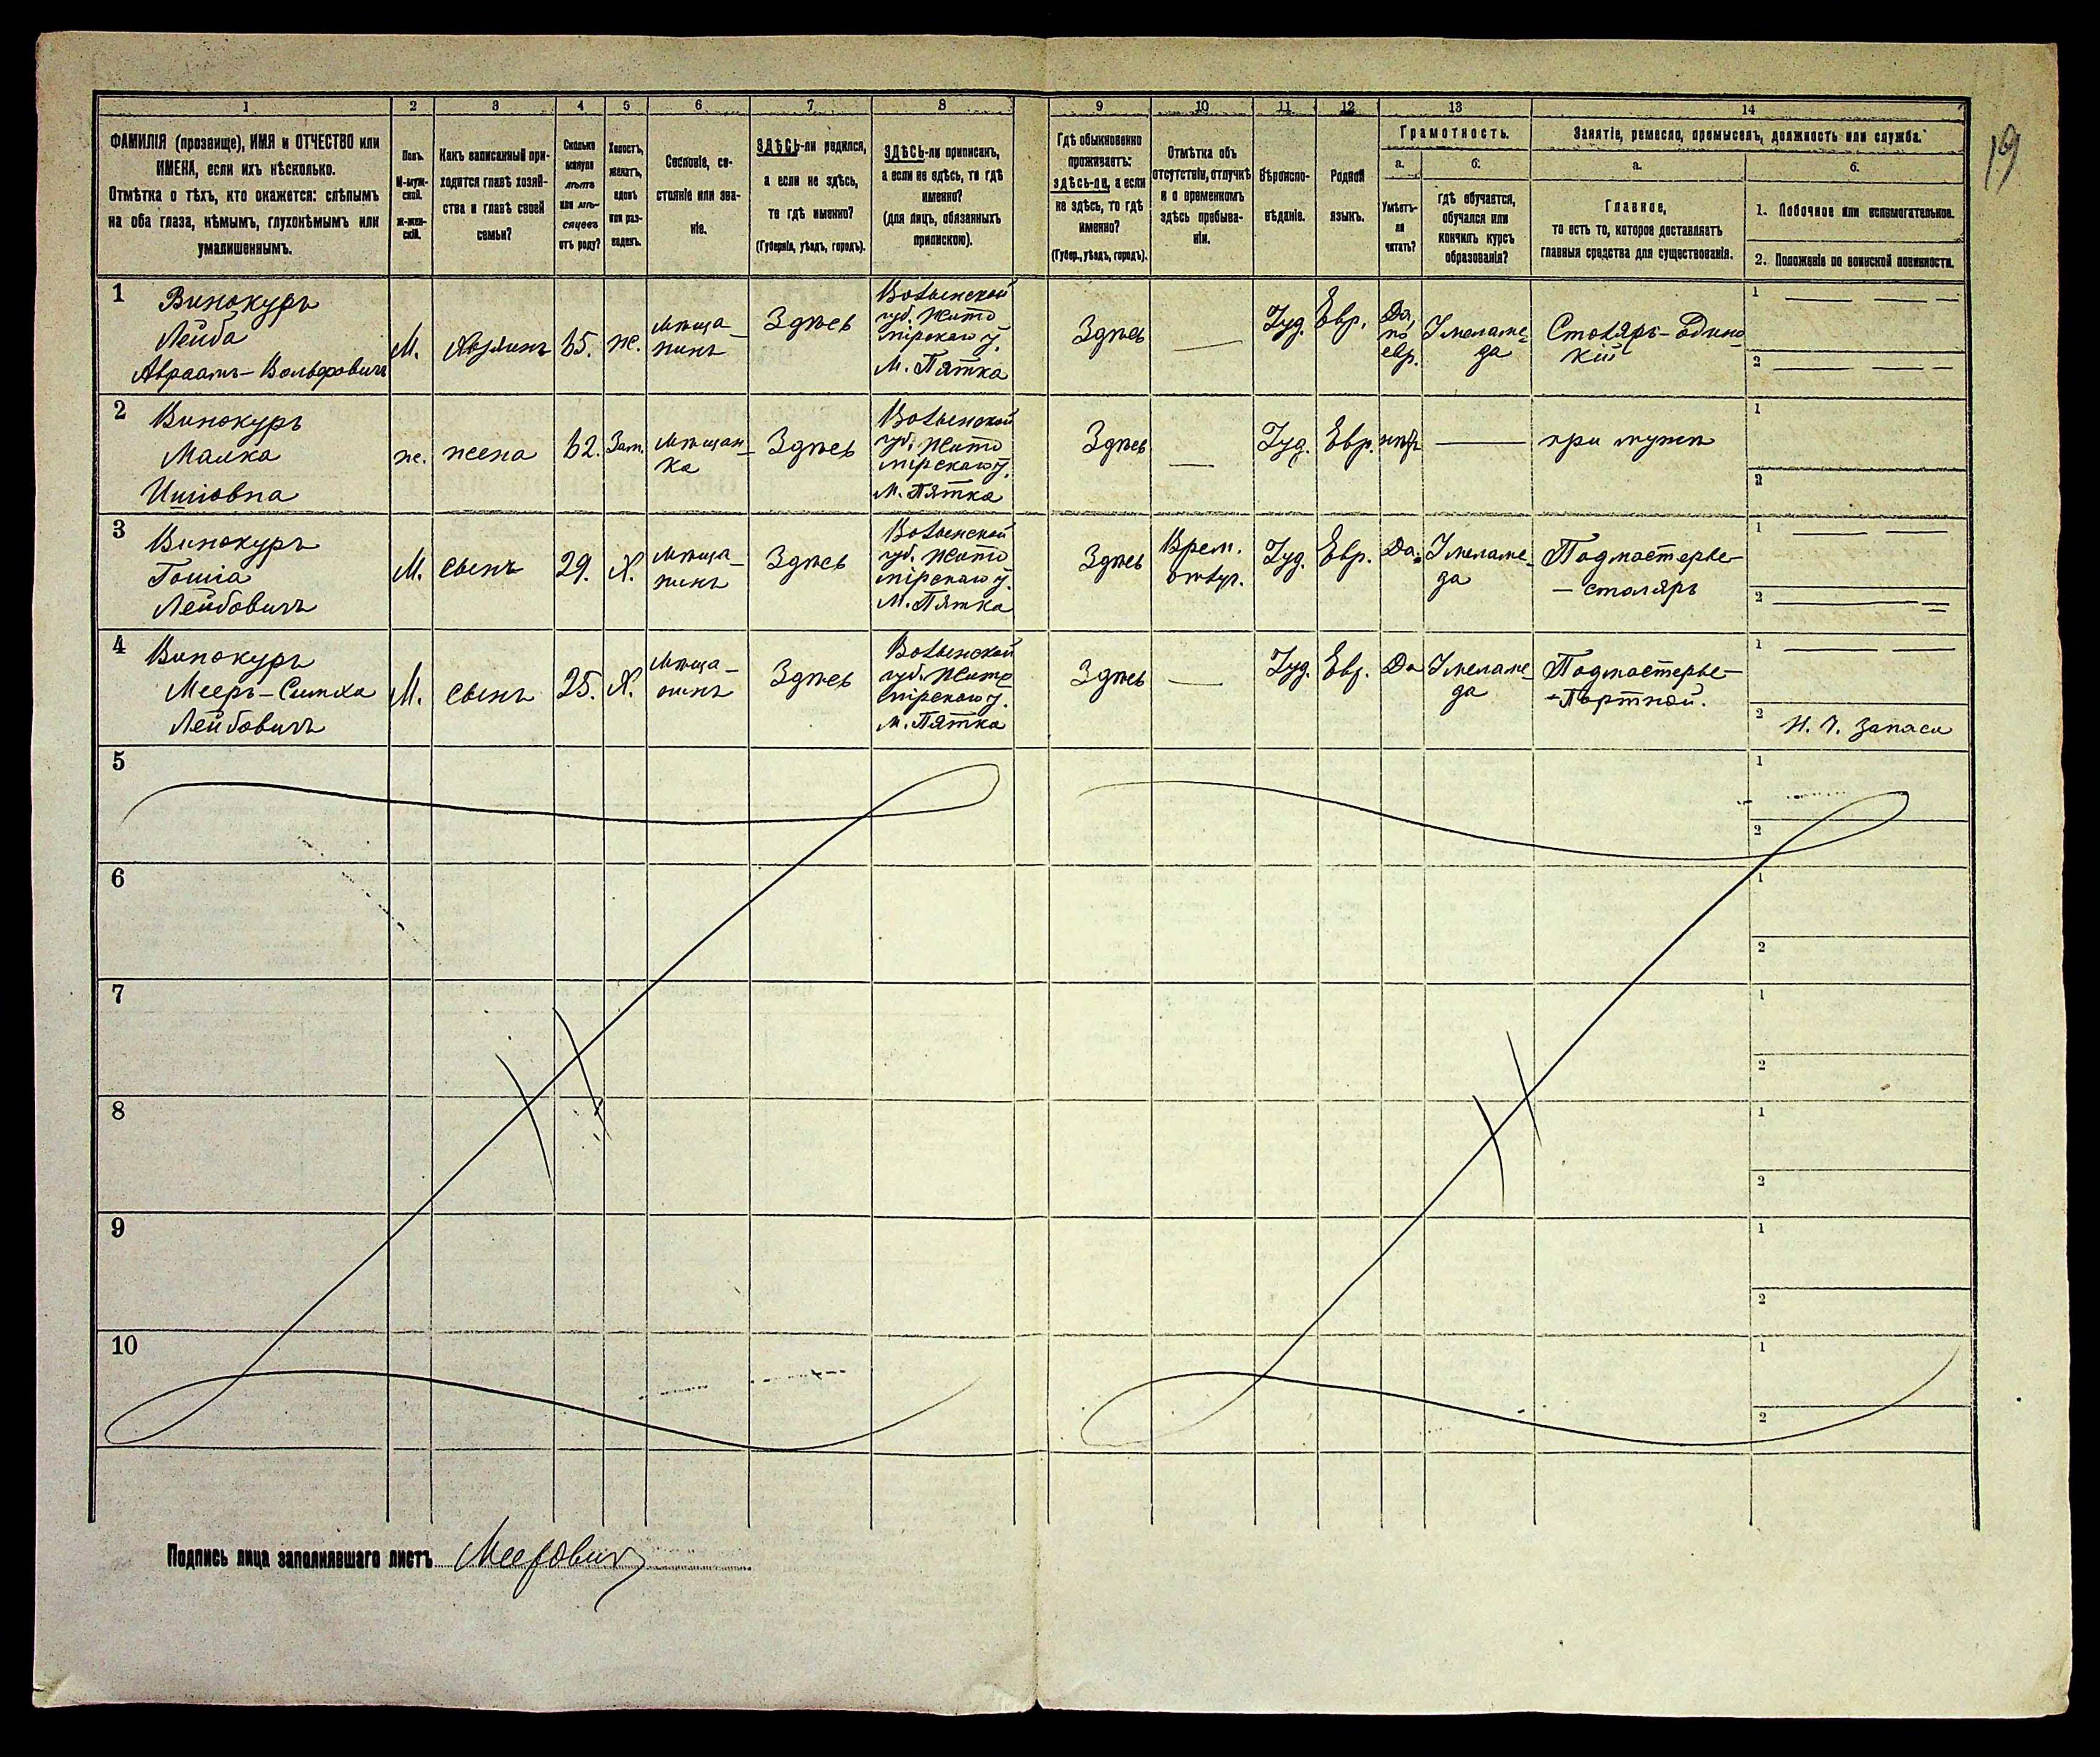 19
1 2 3 4 5 6 7 8 9 10 11 12 13 14
ФАМИЛІЯ (прозвище), ИМЯ и ОТЧЕСТВО или
ИМЕНА, если ихъ нѣсколько.
Отмѣтка о тѣхъ, кто окажется: слѣпымъ
на оба глаза, нѣмымъ, глухонѣмымъ или
умалишеннымъ.
Полъ.
М-муж-
ской.
Ж-жен-
скій.
Какъ записанный при-
ходится главѣ хозяй-
ства и главѣ своей
семьи?
Сколько
минуло
лѣтъ
или мѣ-
сяцевъ
отъ роду?
Холостъ,
женатъ,
вдовъ
или раз-
веденъ.
Сословіе, со-
стояніе или зва-
ніе.
ЗДѢСЬ-ли родился,
а если не здѣсь,
то гдѣ именно?
(Губернія, уѣздъ, городъ).
ЗДѢСЬ-ли приписанъ,
а если не здѣсь, то гдѣ
именно?
(для лицъ, обязанныхъ
припискою).
Гдѣ обыкновенно
проживаетъ:
здѣсь-ли, а если
не здѣсь, то гдѣ
именно?
(Губер., уѣздъ, городъ).
Отмѣтка объ
отсутствіи, отлучкѣ
и о временномъ
здѣсь пребыва-
ніи.
Вѣроиспо-
вѣданіе.
Родной
языкъ.
Грамотность.
а.
Умѣетъ-
ли
читать?
б.
гдѣ обучается,
обучался или
кончилъ курсъ
образованія?
Занятіе, ремесло, промыселъ, должность или служба.
а.
Главное,
то есть то, которое доставляетъ
главныя средства для существованія.
б.
1. Побочное или вспомогательное.
2. Положеніе по воинской повинности.
1
Винокуръ
Лейба
Авраамъ-Вольфовичъ
М.
хозяинъ
65.
ж.
мѣща-
нинъ
Здѣсь
Волынской
губ. Жито
мірскаго у.
М. Пятка
Здѣсь
—
Іуд.
Евр.
Да,
по
евр.
У меламе-
да
Столяръ-одино-
кій
1
2
2
Винокуръ
Малка
Ицковна
ж.
жена
62.
Зам.
мѣщан-
ка
Здѣсь
Волынской
губ. Жито
мірскаго у.
М. Пятка
Здѣсь
—
Іуд.
Евр.
нѣтъ
—
при мужѣ
1
2
3
Винокуръ
Гошіа
Лейбовичъ
М.
сынъ
29.
Х.
мѣща-
нинъ
Здѣсь
Волынской
губ. Жито
мірскаго у.
М. Пятка
Здѣсь
Врем.
отлуч.
Іуд.
Евр.
Да.
У меламе-
да
Подмастерье-
- столяръ
1
2
4
Винокуръ
Мееръ-Симха
Лейбовичъ
М.
сынъ
25.
Х.
мѣща-
нинъ
Здѣсь
Волынской
губ. Жито
мірскаго у.
М. Пятка
Здѣсь
—
Іуд.
Евр.
Да
У меламе-
да
Подмастерье-
- Портной.
1
2 Н. Ч. Запаса
5
1
2
6
1
2
7
1
2
8
1
2
9
1
2
10
1
2
Подпись лица заполнявшаго листъ Меерович